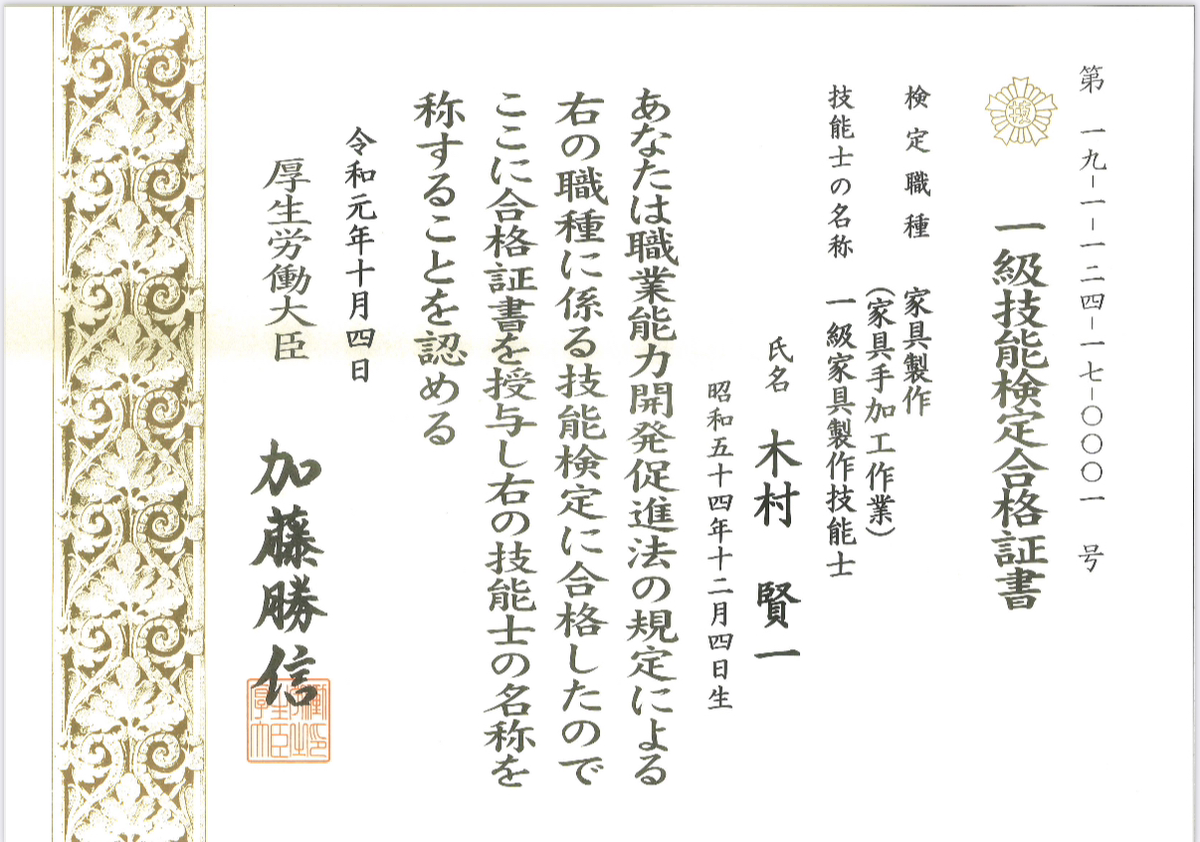 第 一九-一-一二四-一七-〇〇〇一 号
技
一級技能検定合格証書
検定職種 家具製作
(家具手加工作業)
技能士の名称 一級家具製作技能士
氏名 木村 賢一
昭和五十四年十二月四日生
あなたは職業能力開発促進法の規定による
右の職種に係る技能検定に合格したので
ここに合格証書を授与し右の技能士の名称を
称することを認める
令和元年十月四日
厚生労働大臣 加藤勝信